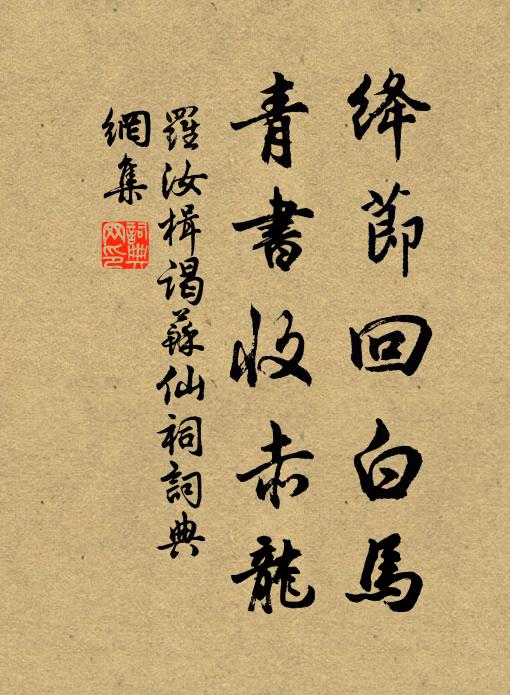 絳節回白馬
青書收赤龍
羅汝楫謁蘇仙祠詞典
網集
詞典
网印